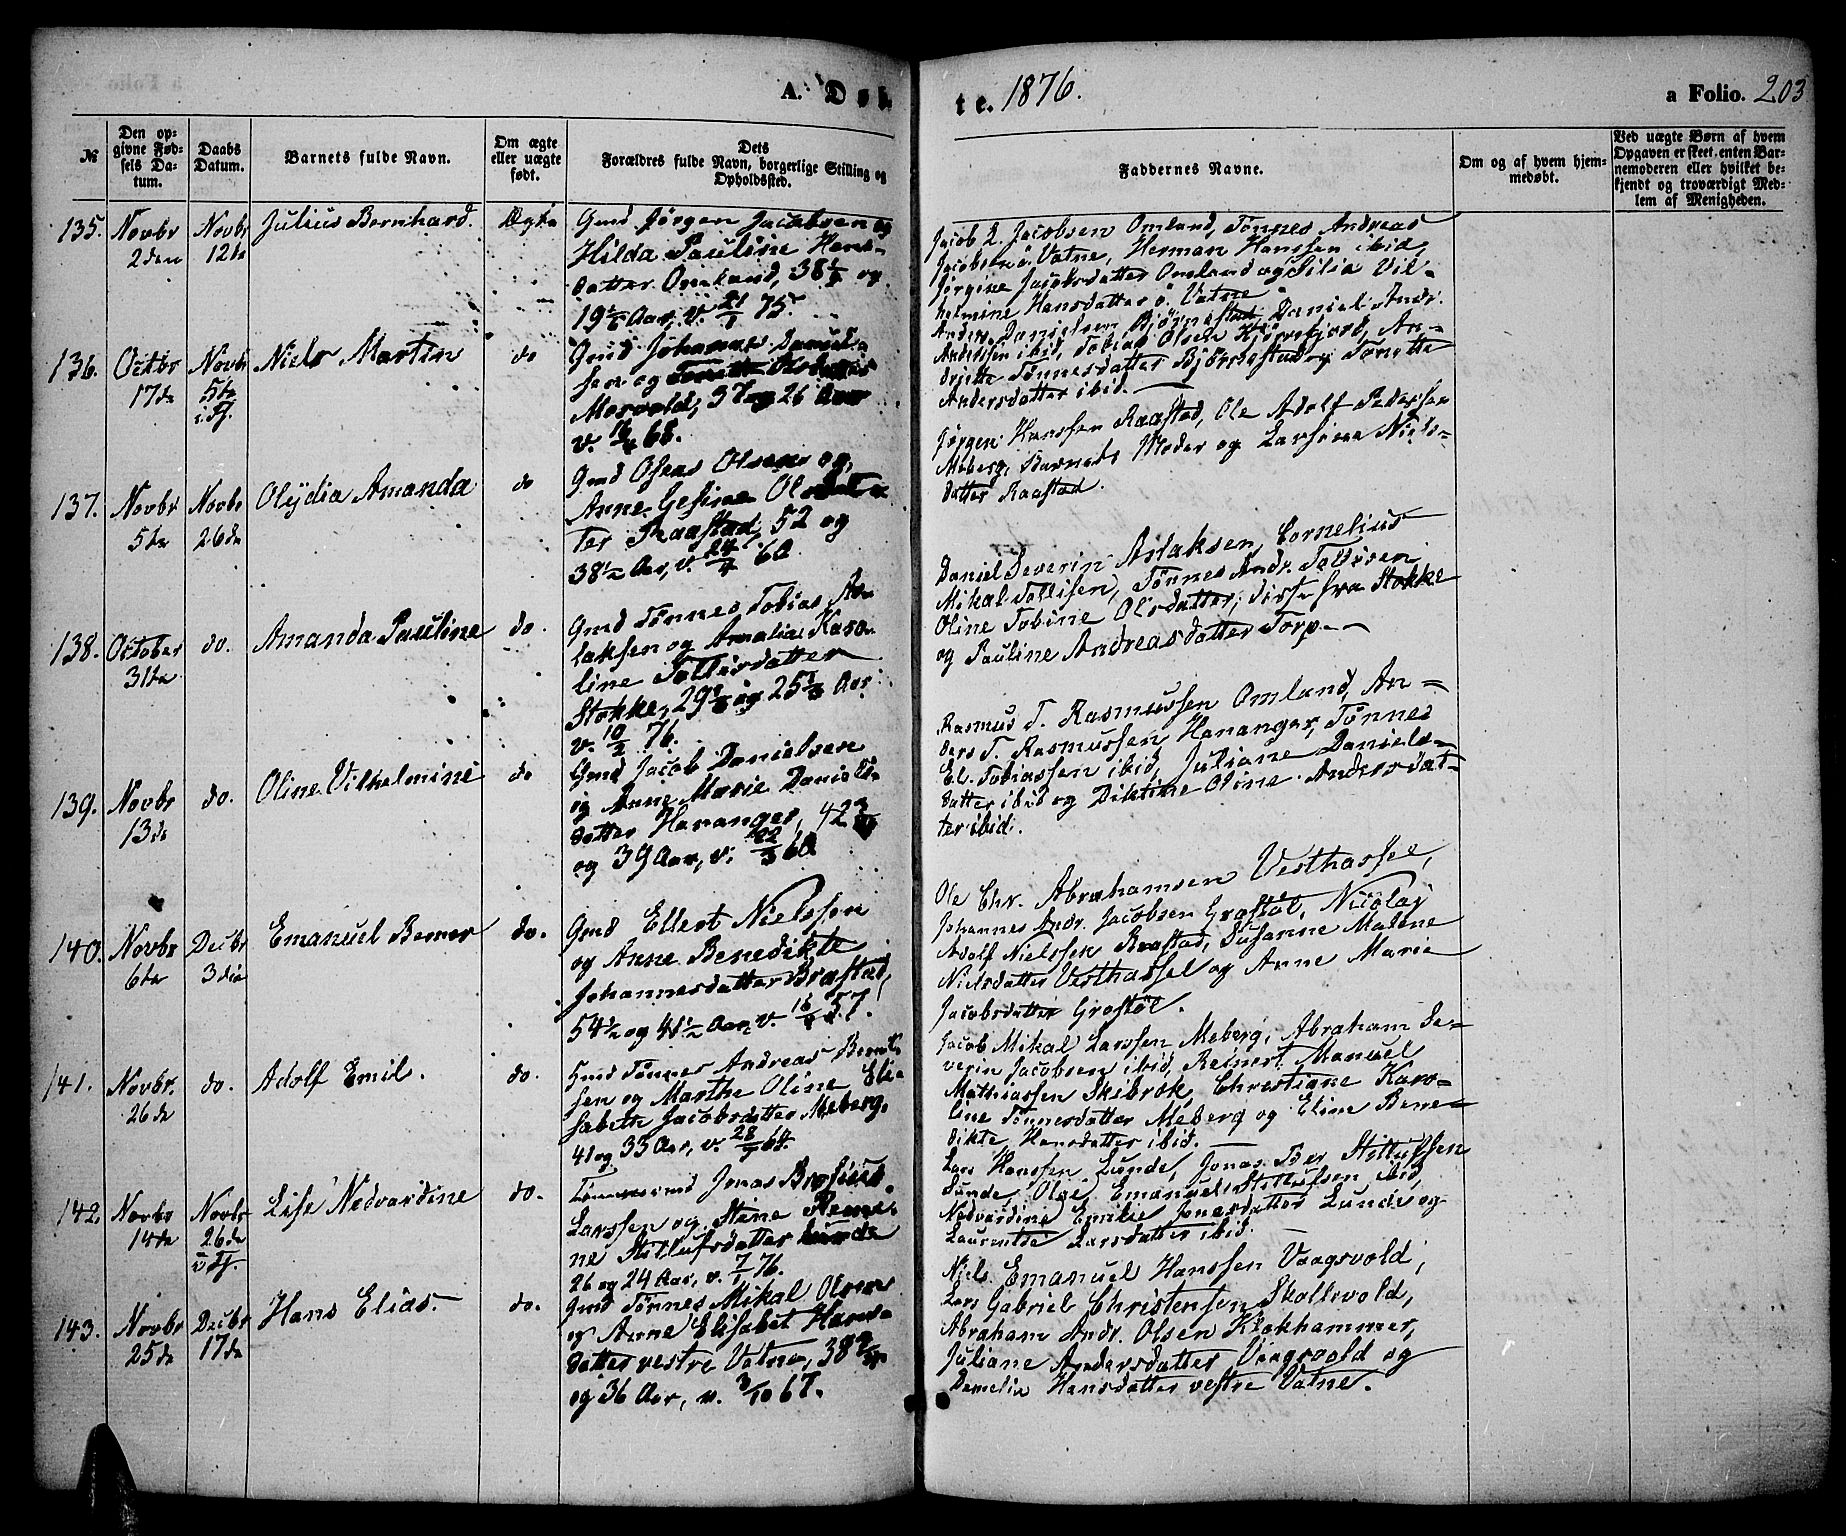 A. Døb-
te. 1876.
a Folio. 203
№
Den op-
givne Fød-
sels Da-
tum.
Daabs
Datum.
Barnets fulde Navn.
Om ægte
eller uægte
født.
Dets
Forældres fulde Navn, borgerlige Stilling og
Opholdssted.
Faddernes Navne.
Om og af hvem hjem-
medøbt.
Ved uægte Børn af hvem
Opgaven er skeet, enten Bar-
nemoderen eller hvilket be-
kjendt og troværdigt Med-
lem af Menigheden.
135.
Novbr
2den
Novbr
12te
Julius Bernhard.
Ægte
Gmd Jørgen Jacobsen og
Hilda Pauline Hans-
datter Omland, 38 1/2 og
19 1/2 Aar, v. 21/1 75.
Jacob L. Jacobsen Omland, Tønnes Andreas
Jacobsen ö. Vatne, Herman Hanssen ibid,
Jørgine Jacobsdatter Omland og Silia Vil-
helmine Hansdatter ö. Vatne
136.
Octbr
17de
Novbr
5te
i Kj.
Niels Martin
do
Gmd Johannes Daniel-
sen og Tonette Olsdatter
Mosvold, 37 og 26 Aar
v. 68.
Anders Danielsen Bjørnestad, Daniel Andr.
Anderssen ibid, Tobias Olsen Kjørrefjord, An-
dritte Tønnesdatter Bjørnestad og Tonette
Andersdatter ibid.
137.
Novbr
5te
Novbr
26de
Olydia Amanda
do
Gmd Oseas Olsen og
Anne Gesine Olsdat-
ter Raastad, 52 og
38 1/2 Aar, v. 24/4 60.
Jørgen Hanssen Raastad, Ole Adolf Pedersen
Meberg, Barnets Moder og Larsine Niels-
datter Raastad.
138.
October
31te
do.
Amanda Pauline
do.
Gmd Tønnes Tobias As-
laksen og Amalia Karo-
line Tollisdatter
Stokke, 29 og 25 Aar
v. 10/2 76.
Daniel Severin Aslaksen, Cornelius
Mikal Tollisen, Tønnes Andr. Tollisen
Oline Tobine Olsdatter, disse fra Stokke
og Pauline Andreasdatter Torp.
139.
Novbr
13de
do.
Oline Vilhelmine
do
Gmd Jacob Danielsen
og Anne Marie Daniels-
datter Hananger, 42
og 39 Aar, v. 22/3 60
Rasmus T. Rasmussen Omland, An-
ders T. Rasmussen Hananger, Tønnes
El. Tobiassen ibid, Juliane Daniels-
datter ibid og Diktine Oline Andersdat-
ter ibid.
140.
Novbr
6te
Decbr
3die
Emanuel Berner
do.
Gmd Ellert Nielssen
og Anne Benedikte
Johannesdatter Brastad,
54 1/2 og 41 1/2 Aar, v. 57.
Ole Chr. Abrahamsen Vesthassel,
Johannes Andr. Jacobsen Grostøl, Nicolay
Adolf Nielssen Raastad, Susanne Malene
Nielsdatter Vesthassel og Anne Marie
Jacobsdatter Grostøl.
141.
Novbr.
26de
do.
Adolf Emil.
do.
Gmd Tønnes Andreas Bernt-
sen og Marthe Oline Eli-
sabeth Jacobsdatter Meberg,
41 og 33 Aar, v. 28/7 64.
Jacob Mikal Larssen Meberg, Abraham Se-
verin Jacobsen ibid, Reinert Manuel
Mathiassen Skibrok, Christiane Karo-
line Tønnesdatter Meberg og Eline Bene-
dikte Hansdatter ibid.
142
Novbr
14de
Novbr
26de
i Kj.
Lise Nedvardine
do.
Tømmermd Jonas Brosius
Larssen og Stine
ne Stillufsdatter Lunde
26 og 24 Aar, v. 7/1 76.
Lars Hanssen Lunde, Jonas Ber. Stillufsen
Lunde, Olai Emanuel Stillufsen ibid,
Nedvardine Emilie Jonasdatter Lunde og
Laurentse Larsdatter ibid.
143.
Novbr
25de
Decbr
17de
Hans Elias.
do.
Gmd Tønnes Mikal Olsen
og Anne Elisabet Hans-
datter vestre Vatne, 38
og 36 Aar, v. 3/10 67.
Niels Emanuel Hanssen Vaagsvold,
Lars Gabriel Christensen Skollevold,
Abraham Andr. Olsen Klokhammer,
Juliane Andersdatter Vaagsvold og
Damelia Hansdatter vestre Vatne.